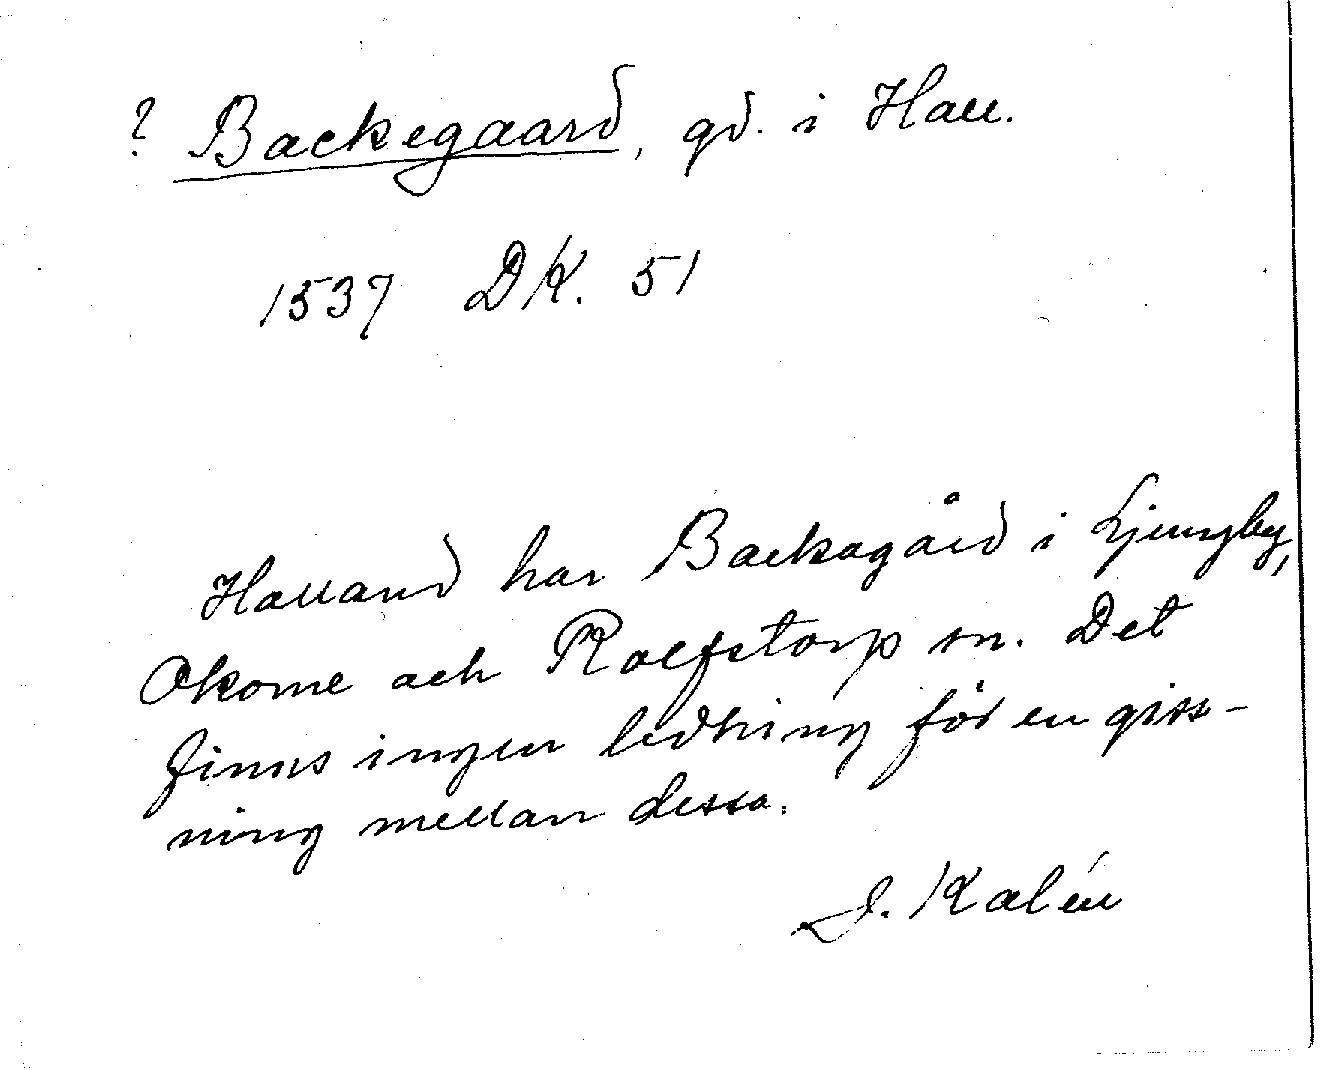 ? Backegaard, gd. i Hall.
1537 DK. 51
Halland har Backagård i Ljungby,
Okome och Rolfstorp sn. Det
finns ingen ledning för en giss-
ning mellan dessa.
J. Kalén